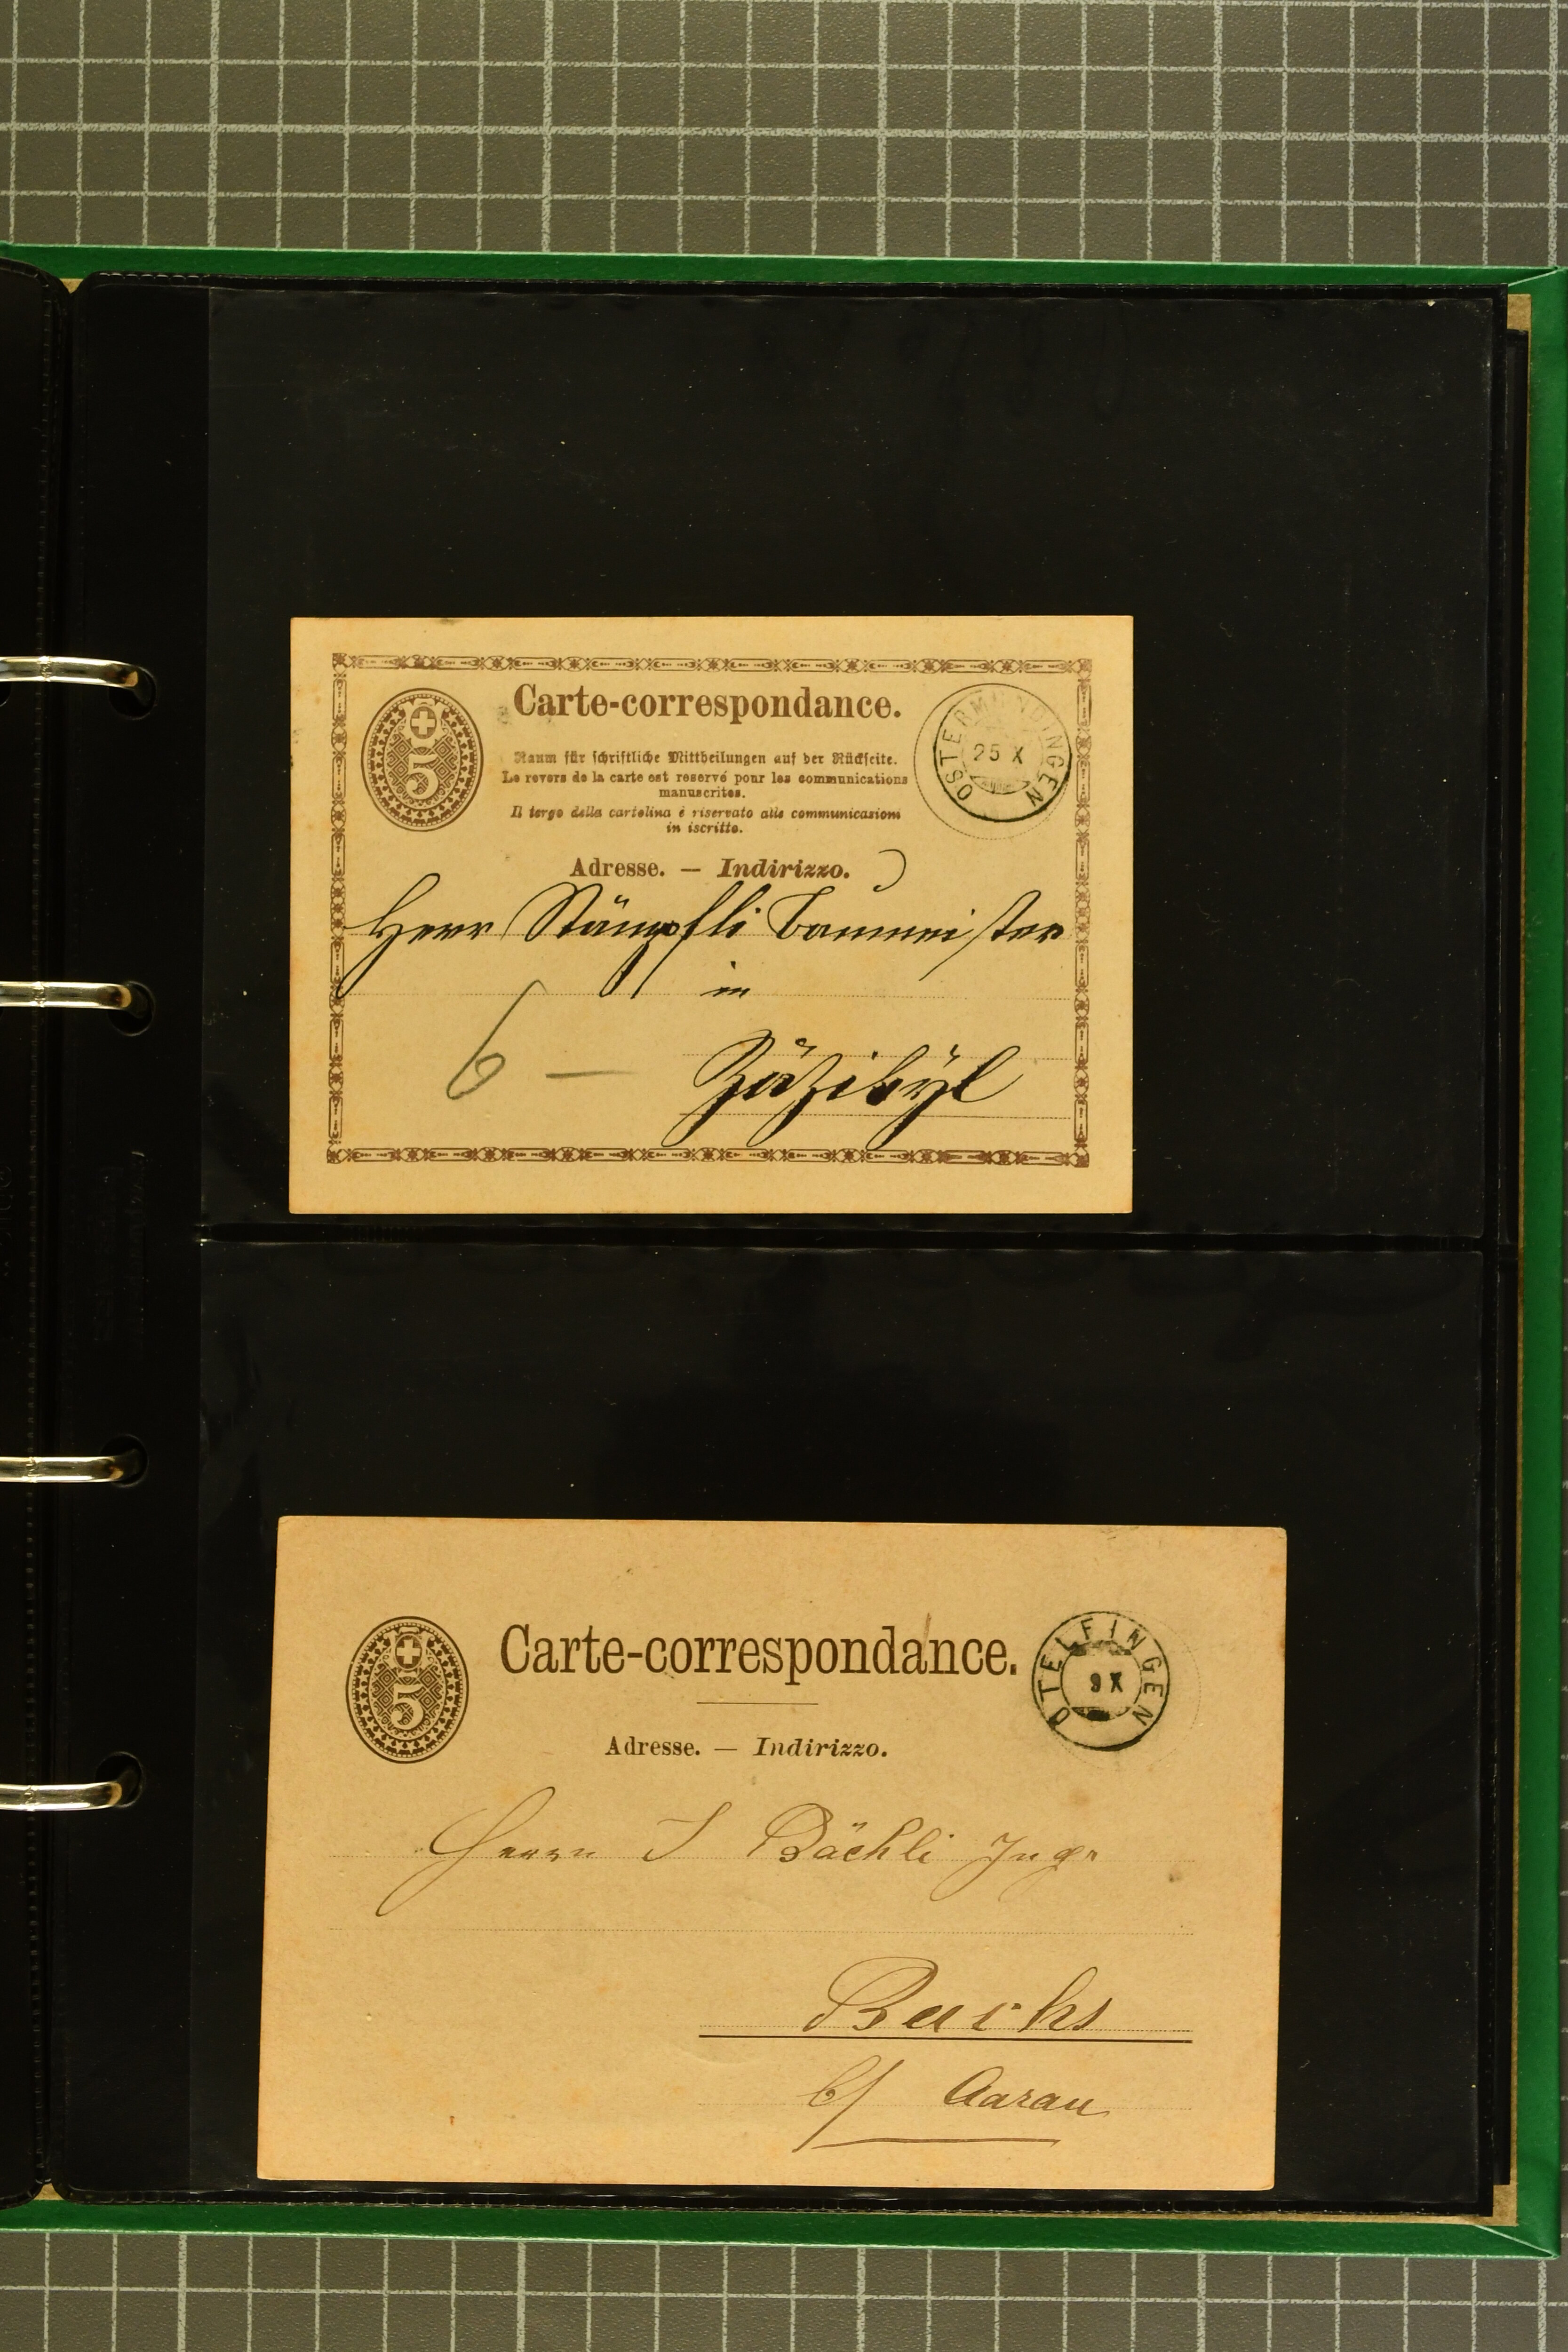 Carte-correspondance.
5
Raum für schriftliche Mittheilungen auf der Rückseite.
Le revers de la carte est réservé pour les communications
manuscrites.
Il tergo della cartolina è riservato alle communicazioni
in iscritto.
OSTERMUNDINGEN
25 X
Adresse. — Indirizzo.
Herr Stämpfli Baumeister
in
6 —
Zäziwyl
Carte-correspondance.
5
OTELFINGEN
9 X
Adresse. — Indirizzo.
Herrn J Bächli Ingr
Buchs
b/ Aarau